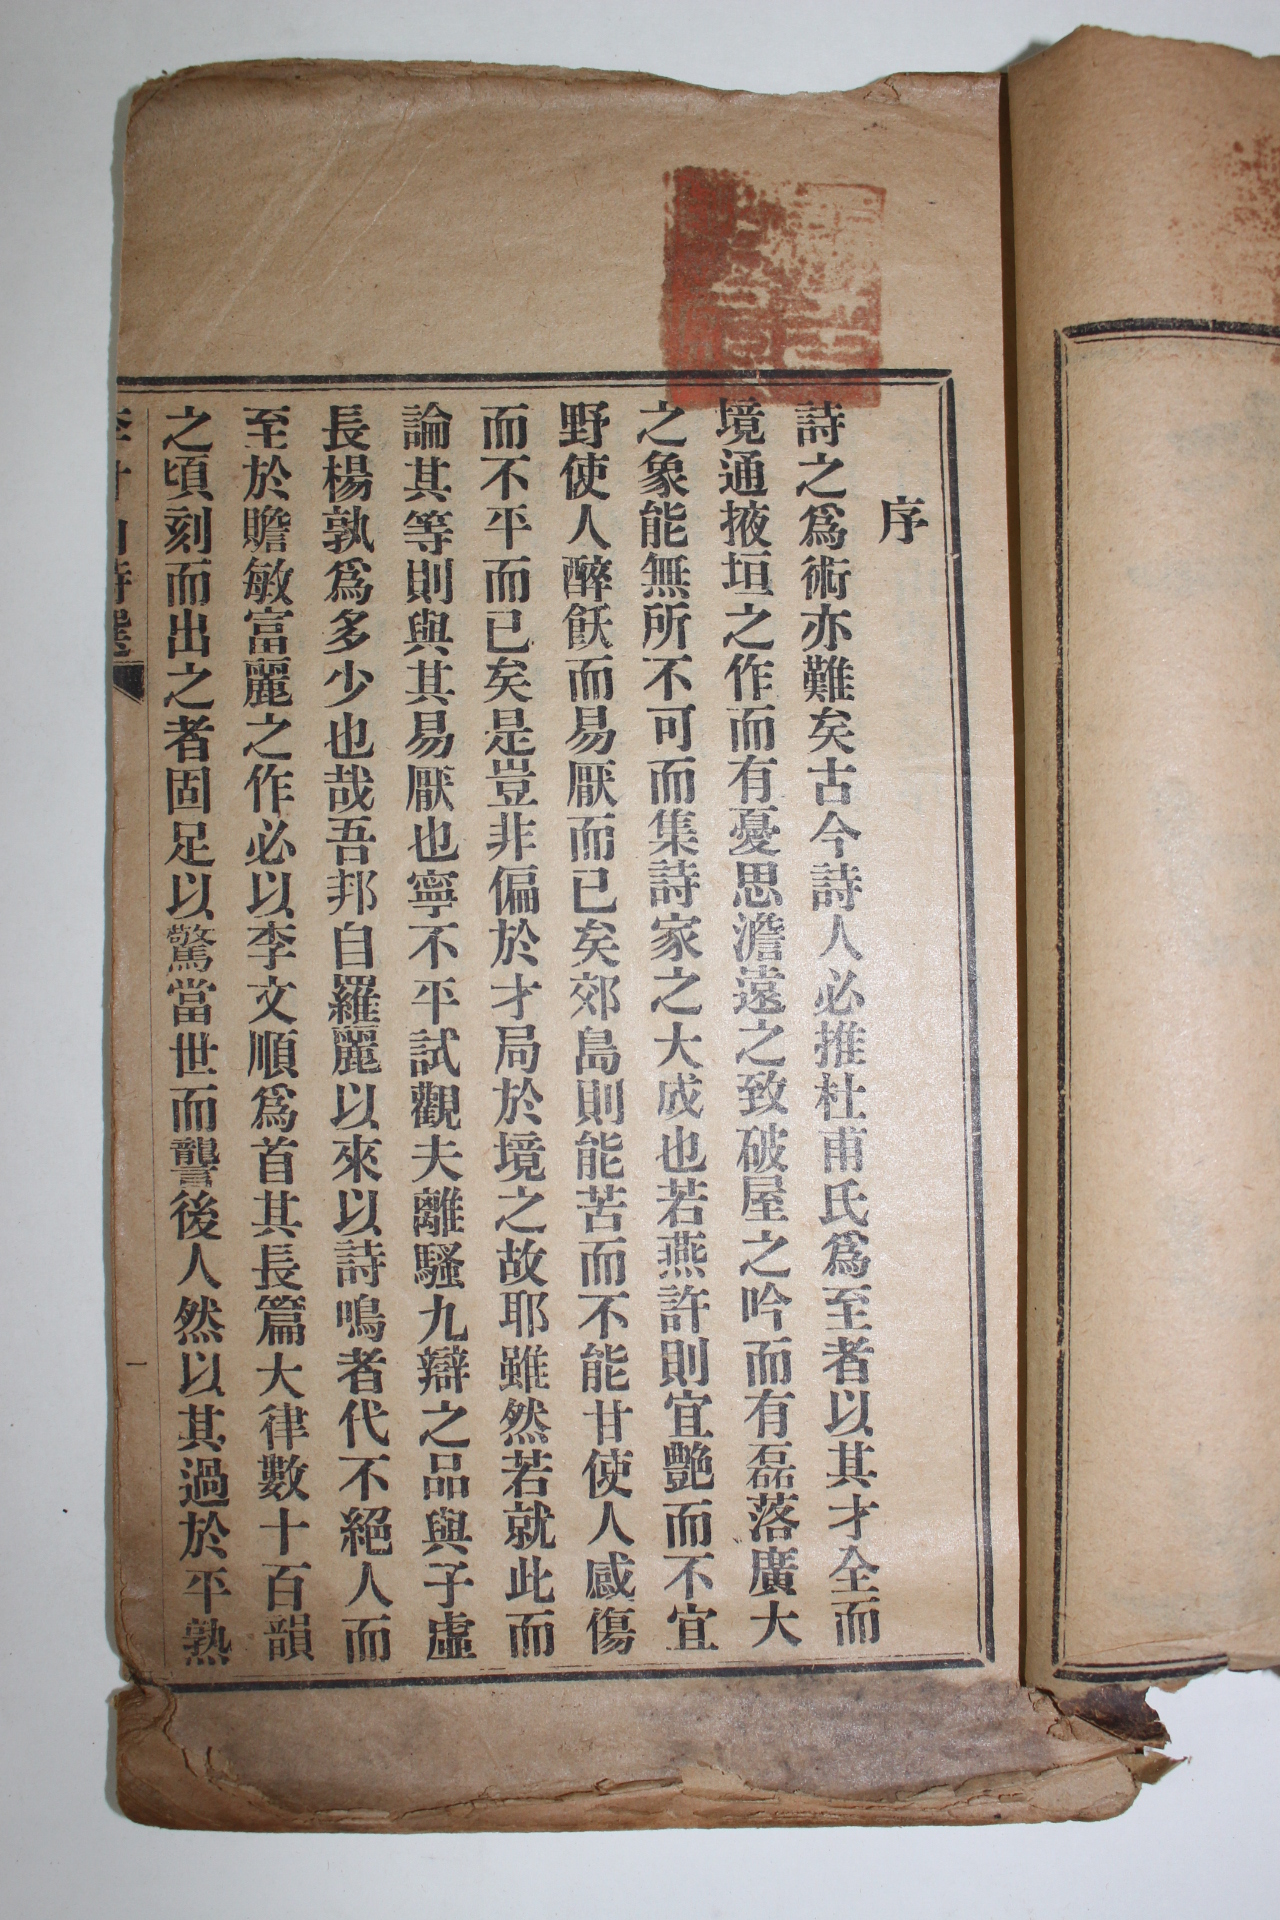 序
詩之爲術亦難矣古今詩人必推杜甫氏爲至者以其才全而
境通掖垣之作而有憂思澹遠之致破屋之吟而有磊落廣大
之象能無所不可而集詩家之大成也若燕許則宜艶而不宜
野使人醉飫而易厭而已矣郊島則能苦而不能甘使人感傷
而不平而已矣是豈非偏於才局於境之故耶雖然若就此而
論其等則與其易厭也寧不平試觀夫離騷九辯之品與子虛
長楊孰爲多少也哉吾邦自羅麗以來以詩鳴者代不絕人而
至於贍敏富麗之作必以李文順爲首其長篇大律數十百韻
之頃刻而出之者固足以驚當世而讋後人然以其過於平熟
詩選
一